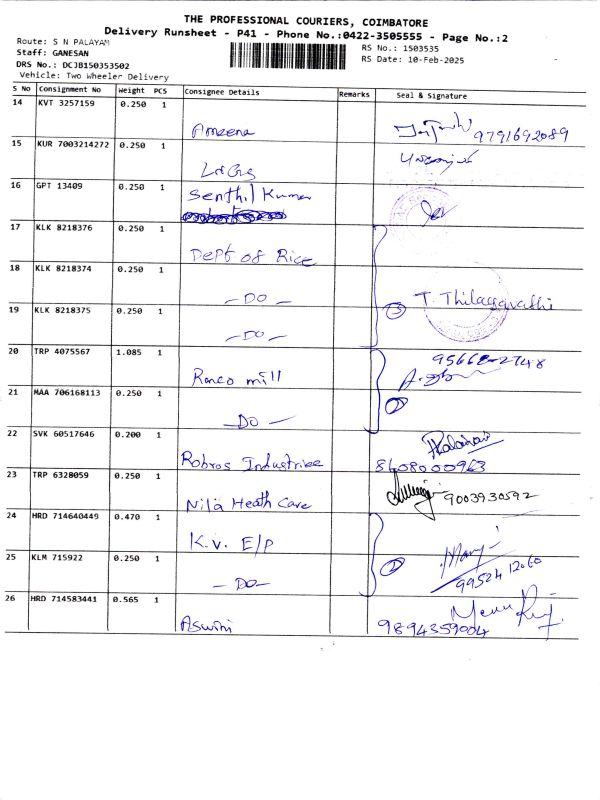 THE PROFESSIONAL COURIERS, COIMBATORE
Delivery Runsheet - P41 - Phone No.:0422-3505555 - Page No.:2
Route: S N PALAYAM
RS No.: 1503535
Staff: GANESAN
RS Date: 10-Feb-2025
DRS No.: DCJB150353502
Vehicle: Two Wheeler Delivery
S No Consignment No Weight PCS Consignee Details Remarks Seal & Signature
14 KVT 3257159 0.250 1
Ameena 9791692089
15 KUR 7003214272 0.250 1
16 GPT 13409 0.250 1
Senthil Kumar
17 KLK 8218376 0.250 1
Dept of Rice
18 KLK 8218374 0.250 1
- DO - 3 T. Thilagavathi
19 KLK 8218375 0.250 1
- DO -
20 TRP 4075567 1.085 1
95662-2748
Roneo mill
21 MAA 706168113 0.250 1
- DO - 2
22 SVK 60517646 0.200 1
Robros Industries 8608000963
23 TRP 6328059 0.250 1
Nila Heath Care 9003930592
24 HRD 714640449 0.470 1
K.v. E/P
25 KLM 715922 0.250 1
- DO - 2 99524 12060
26 HRD 714583441 0.565 1
Aswini 9894359004